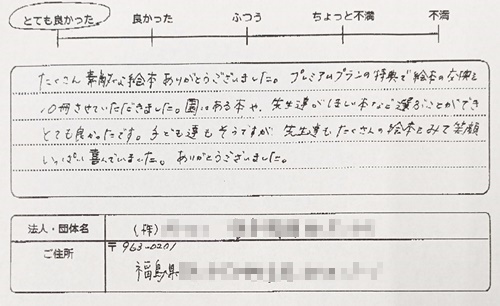 とても良かった。 良かった ふつう ちょっと不満 不満
たくさん素敵な絵本ありがとうございました。プレミアムプランの特典で絵本の
10冊させていただきました。園にある本や、先生達がほしい本など選ぶことができ
とても良かったです。子ども達もそうですが、先生達もたくさんの絵本をみて笑顔
いっぱい喜んでいました。ありがとうございました。
法人・団体名
ご住所 〒963-0201
福島県